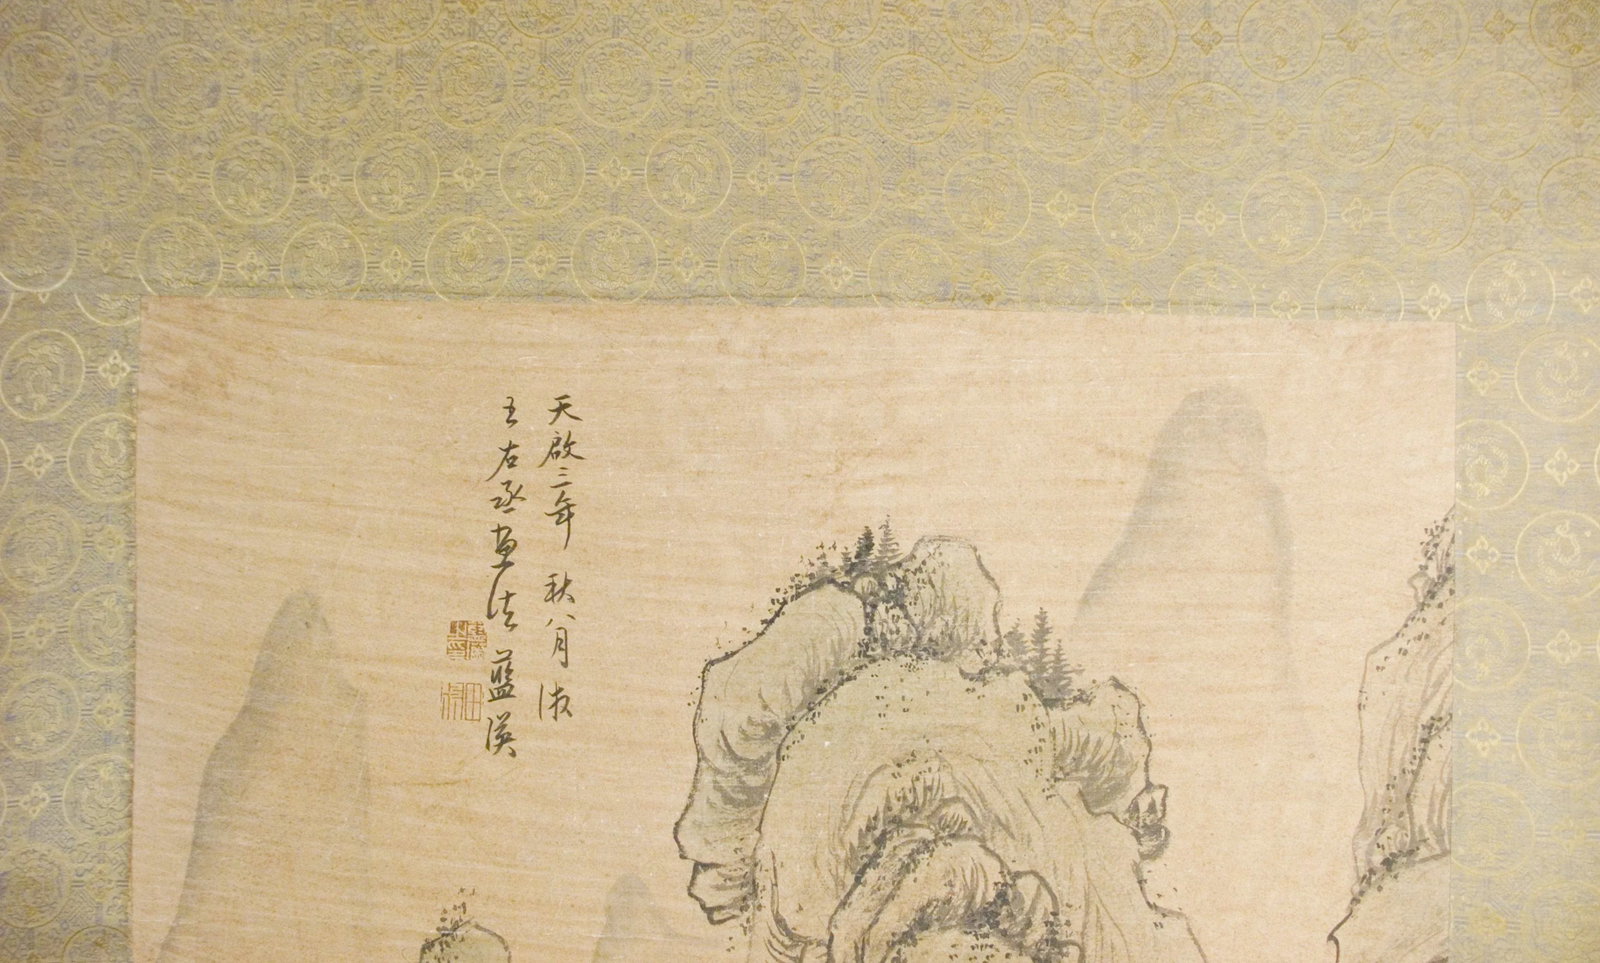 天啟二年 秋八月 法
王右丞畫法 藍瑛